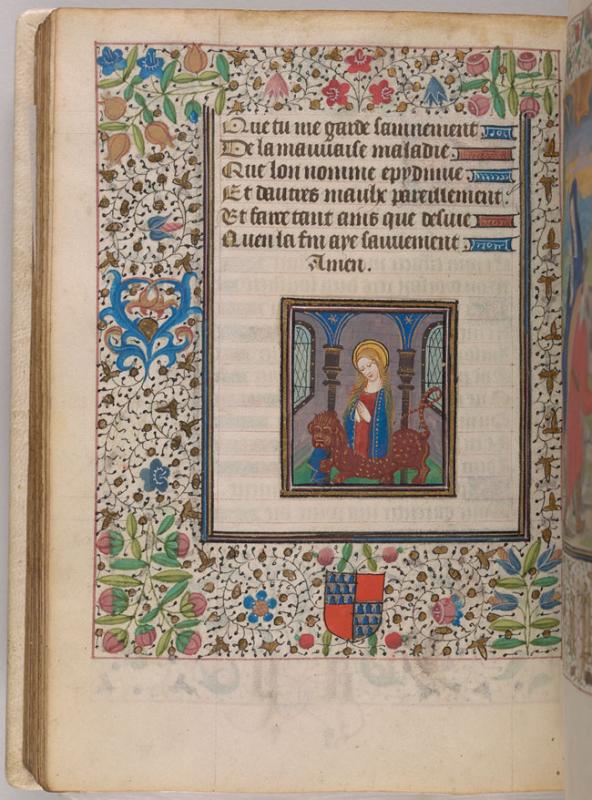 Que tu me garde sauuement
De la mauuaise maladie
Que lon nomme epydimie
Et dautres maulx pareillement.
Et faire tant amis que desuie
Quen la fin aye sauuement
Amen.